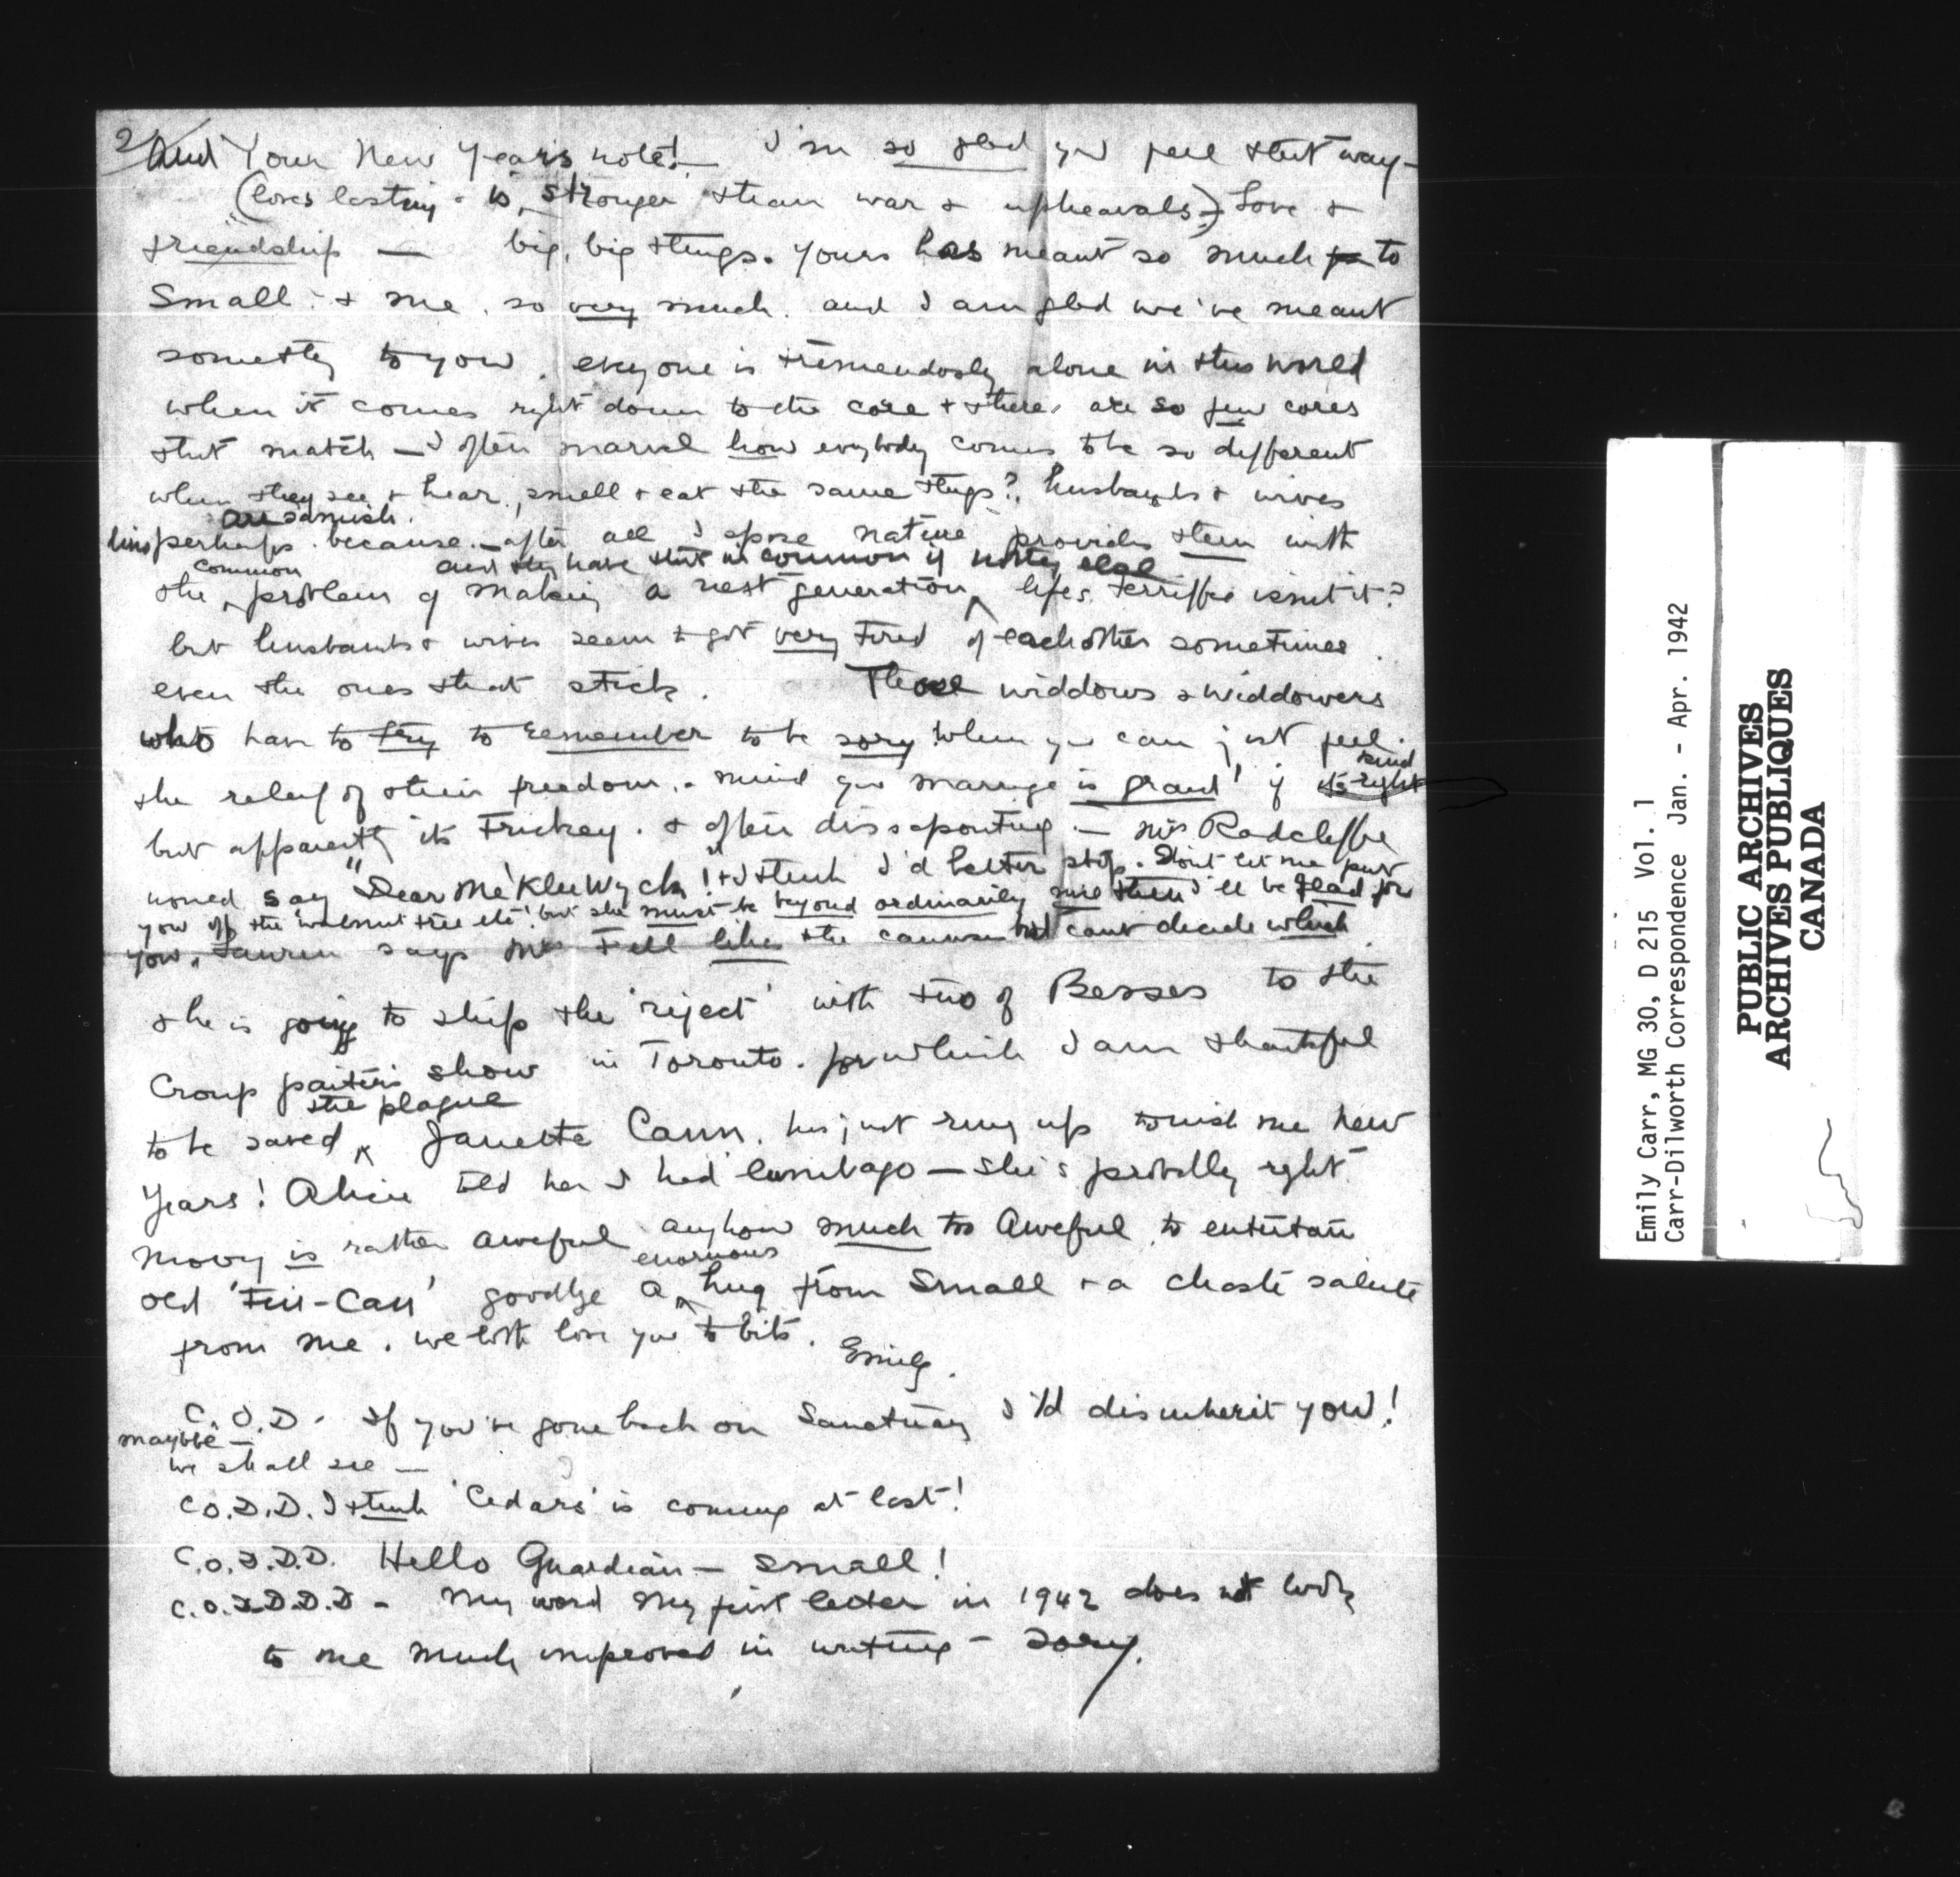 2/ And Your New Years note! I'm so glad you feel that way-
(loves lasting - is, stronger than war & upheavals) Love &
friendship — big, big things. Yours has meant so much to
Small - & me, so very much. and I am glad we've meant
somethg to you. evryone is tremendosly alone in this world
when it comes right down to the core & there, are so few cores
that match — I often marvel how evrybody comes to be so different
when they see & hear, smell & eat the same thgs? husbands & wives
are samish.
perhaps because. — after all I spose nature provides them with
and they have that in common if nothg else
common
the problem of making a next generation lifes terriffic isn't it?
but husbands & wives seem to get very tired of each other sometimes.
even the ones that stick. Those widdows & widdowers
who have to try to remember to be sory when you can just feel.
the relief of their freedom. - mind you marrige is grand! if its right
but apparently its Trickey. & often dissaponting. — Mrs Radcliffe
woued say "Dear Me' Klee Wyck!" & I think I'd better stop. Don't let me put
you off the 'walnut tree etc! but she must be beyond ordinarily nice then I'll be glad for
you. Lauren says Mrs Fell likes the canvases but cant decide which
she is going to ship the 'reject' with two of Besses to the
Group paiters show in Toronto. for which I am thankful
the plague
to be saved Janette Cann. has just rung up to wish me New
Years! Alice told her I had lumbago — she's probably right.
Movg is rather aweful anyhow much too Aweful to entertain
enormous
old 'Tin-Can' goodbye A hug from Small & a chaste salute
from me. we both love you to bits.
Emily.
C.O.D. - If you've gone back on Sanctuary I'ld disinherit you!
maybbe —
we shall see —
C O.D.D. I think 'Cedars' is coming at last!
C.O.D.D.D. Hello Guardian — Small!
C.O.D.D.D.D - My word My first letter in 1942 does not look
to me much improved in writing - Sory.
Emily Carr, MG 30, D 215 Vol. 1
Carr-Dilworth Correspondence Jan. - Apr. 1942
PUBLIC ARCHIVES
ARCHIVES PUBLIQUES
CANADA